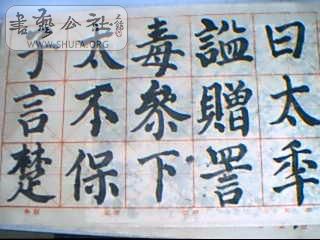 書藝公社
WWW.SHUFA.ORG
曰太
贈詈
毒下
太不保
言楚